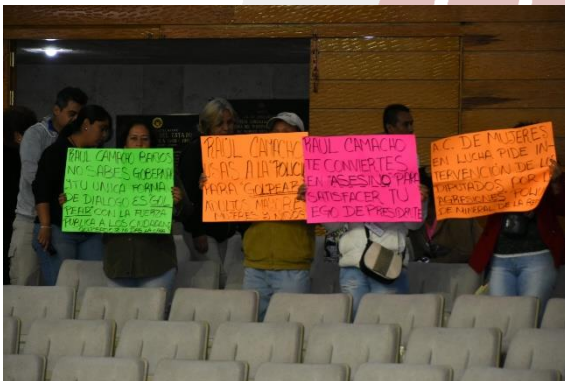 RAUL CAMACHO BAÑOS
NO SABES GOBERNAR
Y TU UNICA FORMA
DE DIALOGO ES GOL
PEAR CON LA FUERZA
PUBLICA A LOS CIUDADANOS
RAÚL CAMACHO
USAS A LA "POLICIA
PARA "GOLPEAR
A NIÑOS
RAUL CAMACHO
TE CONVIERTES
EN ASESINO PARA
SATISFACER TU
EGO DE PRESIDENTE
A.C. DE MUJERES
EN LUCHA PIDE IN
TERVENCIÓN DE LOS
DIPUTADOS POR LA
AGRESIONES
DE MINERAL DE LA REF